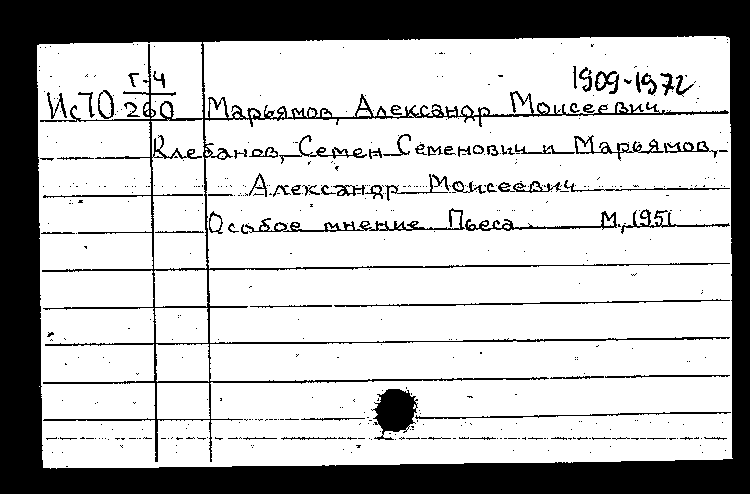 1909-1972
Г-4
Ис70 260 Марьямов, Александр Моисеевич.
Клебанов, Семен Семенович и Марьямов,
Александр Моисеевич
Особое мнение. Пьеса. М, 1951